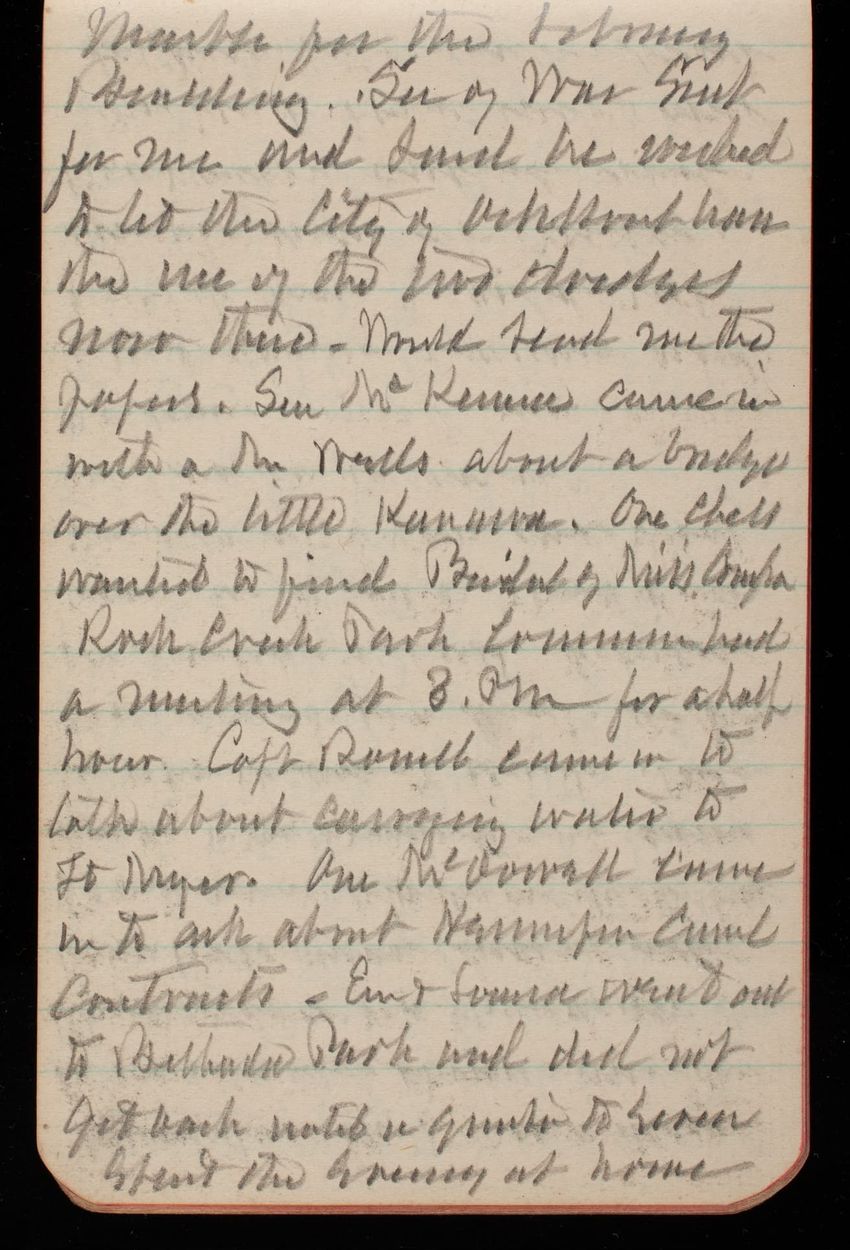 Marble for the Library
Building. Sec of War Sent
for me and Said he wished
to let the City of have
the use of the two dredges
now there - Would send me the
papers. Sen McKenna came in
with a Mr Wells about a bridge
over the little Kanawa. One Chess
wanted to find of Miss.
Rock Creek Park Commission had
a meeting at 3. PM for a half
hour. Capt Powell came in to
talk about carrying water to
Ft Myer. One McDowell came
in to ask about Hennepin Canal
Contracts - Em & went out
to Park and did not
get back until a quarter to Seven
Spent the Evening at home